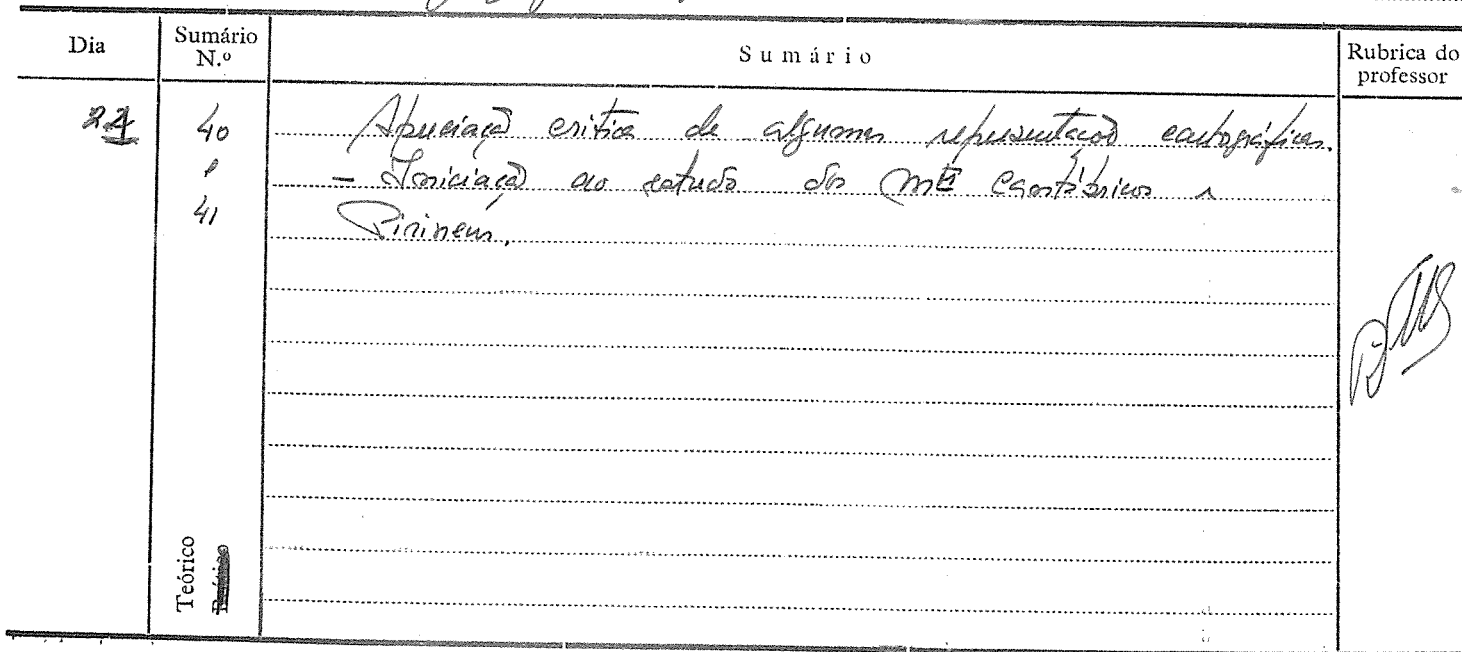 Dia
Sumário N.º
Sumário
Rubrica do professor
40
e
41
Apreciação critica de algumas representações cartográficas.
- Iniciação ao estudo dos Cantábricos e
Pirineus.
Teórico